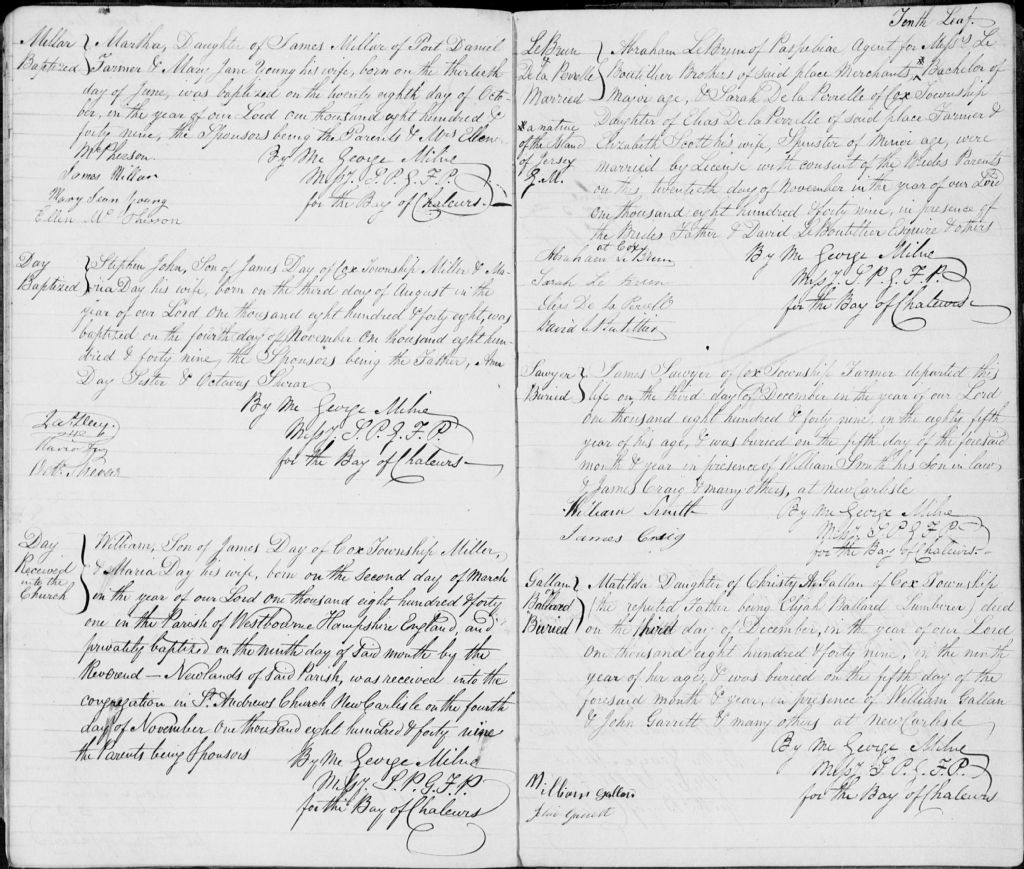 Millar
Baptized
Martha, Daughter of James Millar of Port Daniel
Farmer & Mary Jane Young his wife, born on the thirteeth
day of June, was baptized on the twenty eighth day of Octo-
ber, in the year of our Lord one thousand eight hundred &
forty nine, the Sponsors being the Parents & Mrs Ellen
McPherson.
By Me George Milne
Missy. S. P. G. F. P.
for the Bay of Chaleurs.
James Millar
Mary Jean Young
Ellin Mc
Day
Baptized
Stephen John, Son of James Day of Cox Township Miller & Ma-
ria Day his wife, born on the third day of August in the
year of our Lord one thousand eight hundred & forty eight, was
baptized on the fourth day of November one thousand eight hun-
dred & forty nine, the Sponsors being the Father, Ann
Day Sister & Octavus Sherar
By Me George Milne
Missy. S. P. G. F. P.
for the Bay of Chaleurs
Day
Received
into the
Church
William, Son of James Day of Cox Township Miller,
& Maria Day his wife, born on the second day of March
in the year of our Lord one thousand eight hundred & forty
one in the Parish of Westbourne Hampshire England, and
privately baptized on the ninth day of said month by the
Reverend — Newlands of said Parish, was received into the
congregation in St. Andrews Church New Carlisle on the fourth
day of November one thousand eight hundred & forty nine
the Parents being Sponsors
By Me George Milne
Missy. S. P. G. F. P.
for the Bay of Chaleurs
Tenth Leaf.
LeBrun
&
De la Perrelle
Married
Abraham LeBrun of Paspebiac Agent for Messrs Le
Boutillier Brothers of said place Merchants * Bachelor of
major age, & Sarah De la Perrelle of Cox Township
Daughter of Elias De la Perrelle of said place Farmer &
Elizabeth Scott his wife, Spinster of Minor age, were
married by License with consent of the Brides Parents
on this twentieth day of November in the year of our Lord
one thousand eight hundred & forty nine, in presence of
the Brides Father & David LeBoutillier Esquire & others
at Cox
* a native
of the Island
of Jersey
G. M.
By Me George Milne
Missy. S. P. G. F. P.
for the Bay of Chaleurs
Abraham Le Brun
Sarah Le Brun
Elias De La Perrelle
David
Sawyer
Buried
James Sawyer of Cox Township Farmer departed this
life on the third day of December in the year of our Lord
one thousand eight hundred & forty nine, in the eighty fifth
year of his age, & was buried on the fifth day of the foresaid
month & year in presence of William Smith his Son in law
& James Craig & many others, at new Carlisle
William Smith
James Craig
By Me George Milne
Missy. S. P. G. F. P.
for the Bay of Chaleurs.
Gallan
or
Ballard
Buried
Matilda Daughter of Christy A Gallan of Cox Township
(the reputed Father being Elijah Ballard Lumberer) died
on the third day of December, in the year of our Lord
one thousand eight hundred & forty nine, in the ninth
year of her age, & was buried on the fifth day of the
foresaid month & year, in presence of William Gallan
& John Garrett & many others at new Carlisle
By Me George Milne
Missy. S. P. G. F. P.
for the Bay of Chaleurs
William Gallan
John Garrett